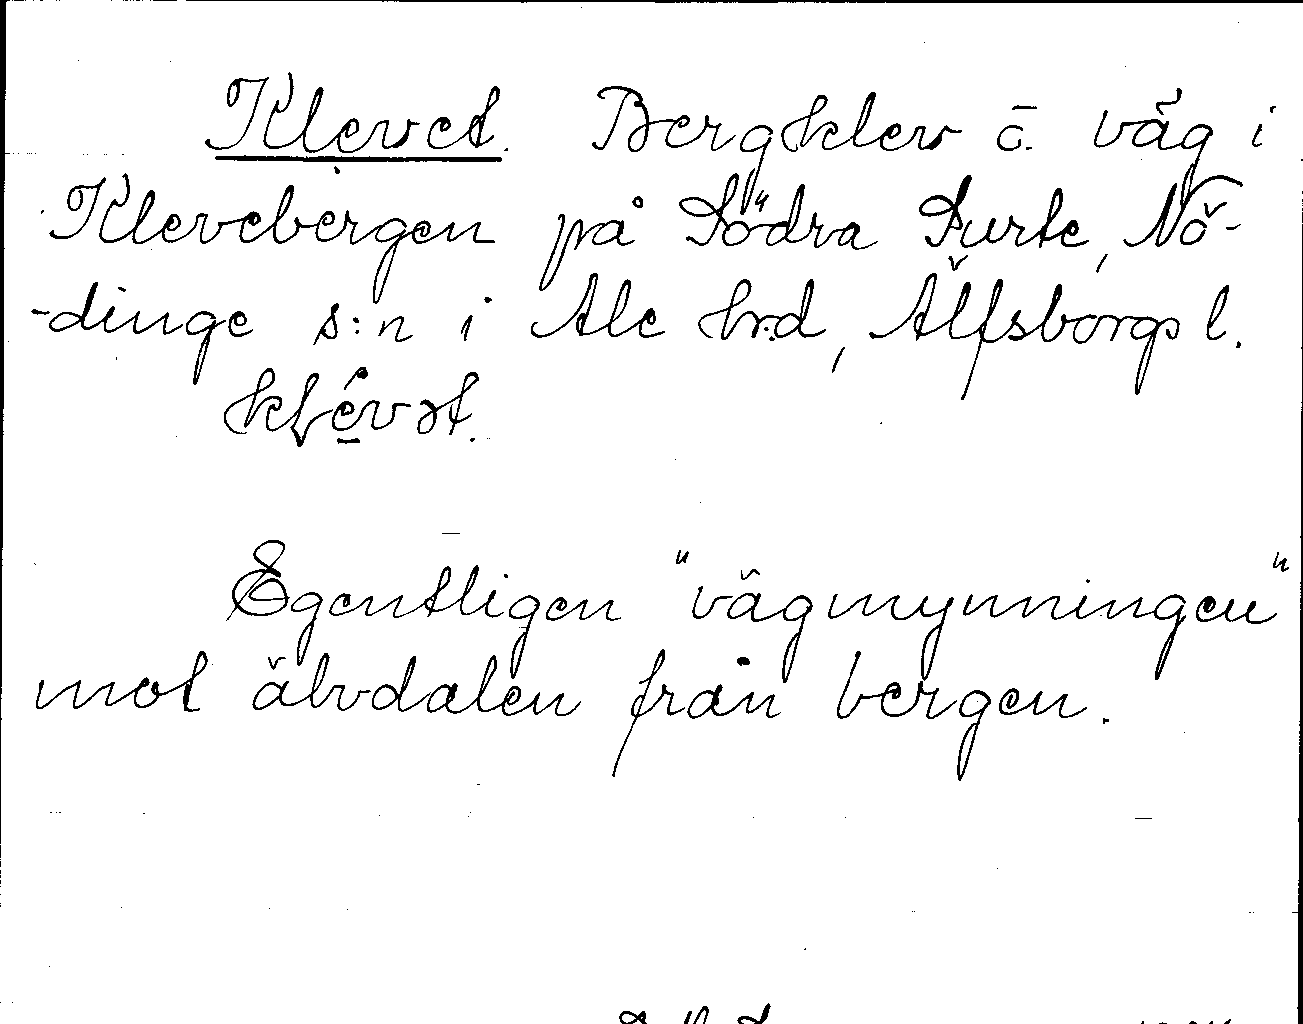 Klevet. Bergklev o. väg i
Klevebergen på Södra Surte, Nö-
-dinge s:n i Ale hrd, Älfsborgs l.
klévət.
Egentligen "vägmynningen"
mot älvdalen från bergen.